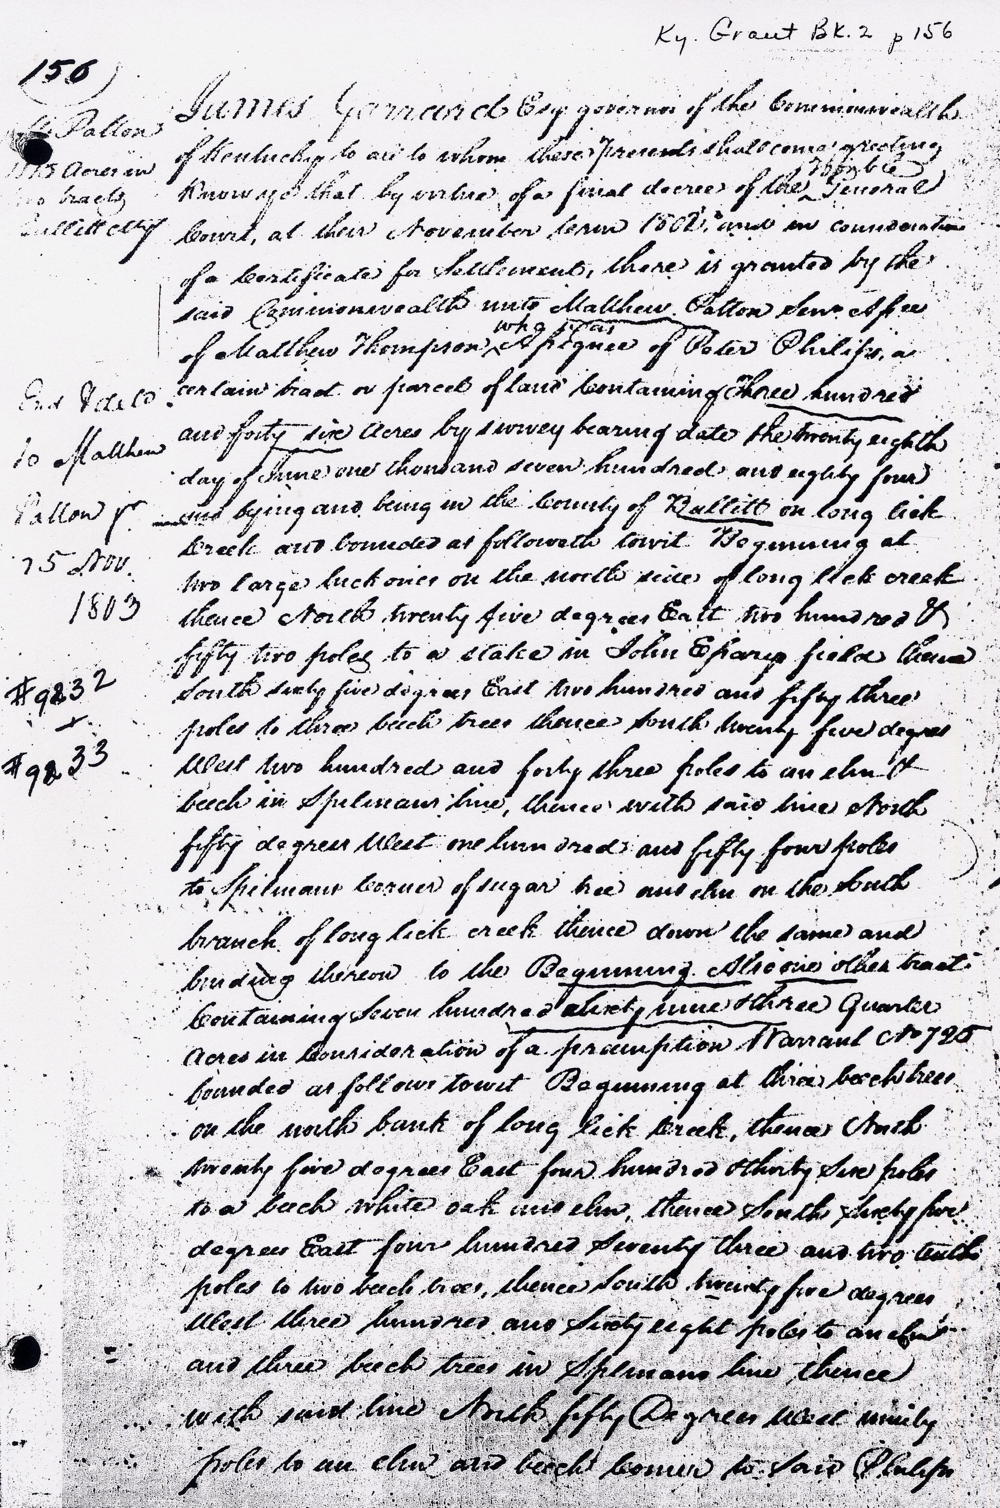 Ky. Grant Bk. 2 p 156
156
Patton
Acres in
tracts
Bullitt cty
James Garrard Esq governor of the Commonwealth
of Kentucky to all to whom these Presents shall come greeting
Know ye that by virtue of a final decree of the Honble General
Court, at their November term 1802, and in consideration
of a Certificate for Settlement, there is granted by the
said Commonwealth unto Matthew Patton Senr Assee
of Matthew Thompson, who was Assignee of Peter Philips, a
certain tract or parcel of land Containing Three hundred
and forty six Acres by survey bearing date the twenty eighth
day of June one thousand seven hundred and eighty four
and lying and being in the County of Bullitt on long lick
Creek and bounded as followeth towit Beginning at
two large buckories on the north side of long lick creek
thence North twenty five degrees East two hundred &
fifty two poles to a stake in John field thence
South sixty five degrees East two hundred and fifty three
poles to three beech trees thence South twenty five degrees
West two hundred and forty three poles to an elm &
beech in Spilmans line, thence with said line North
fifty degrees West one hundred and fifty four poles
to Spilmans Corner of sugar tree and elm on the South
branch of long lick creek thence down the same and
binding thereon to the Beginning. Also one other tract
Containing Seven hundred & sixty nine & three Quarter
Acres in Consideration of a preemption Warrant No 725
bounded as follows towit Beginning at three beech trees
on the north bank of long lick Creek, thence North
twenty five degrees East four hundred & thirty Six poles
to a beech white oak and elm, thence South sixty five
degrees East four hundred Seventy three and two tenths
poles to two beech trees, thence South twenty five degrees
West three hundred and Sixty eight poles to an elm
and three beech trees in Spilmans line thence
with said line North fifty Degrees West ninety
poles to an elm and beech Corner to Said Philips
Exd & deld
to Matthew
Patton jr
25 Nov.
1803
#9232
+
#9233